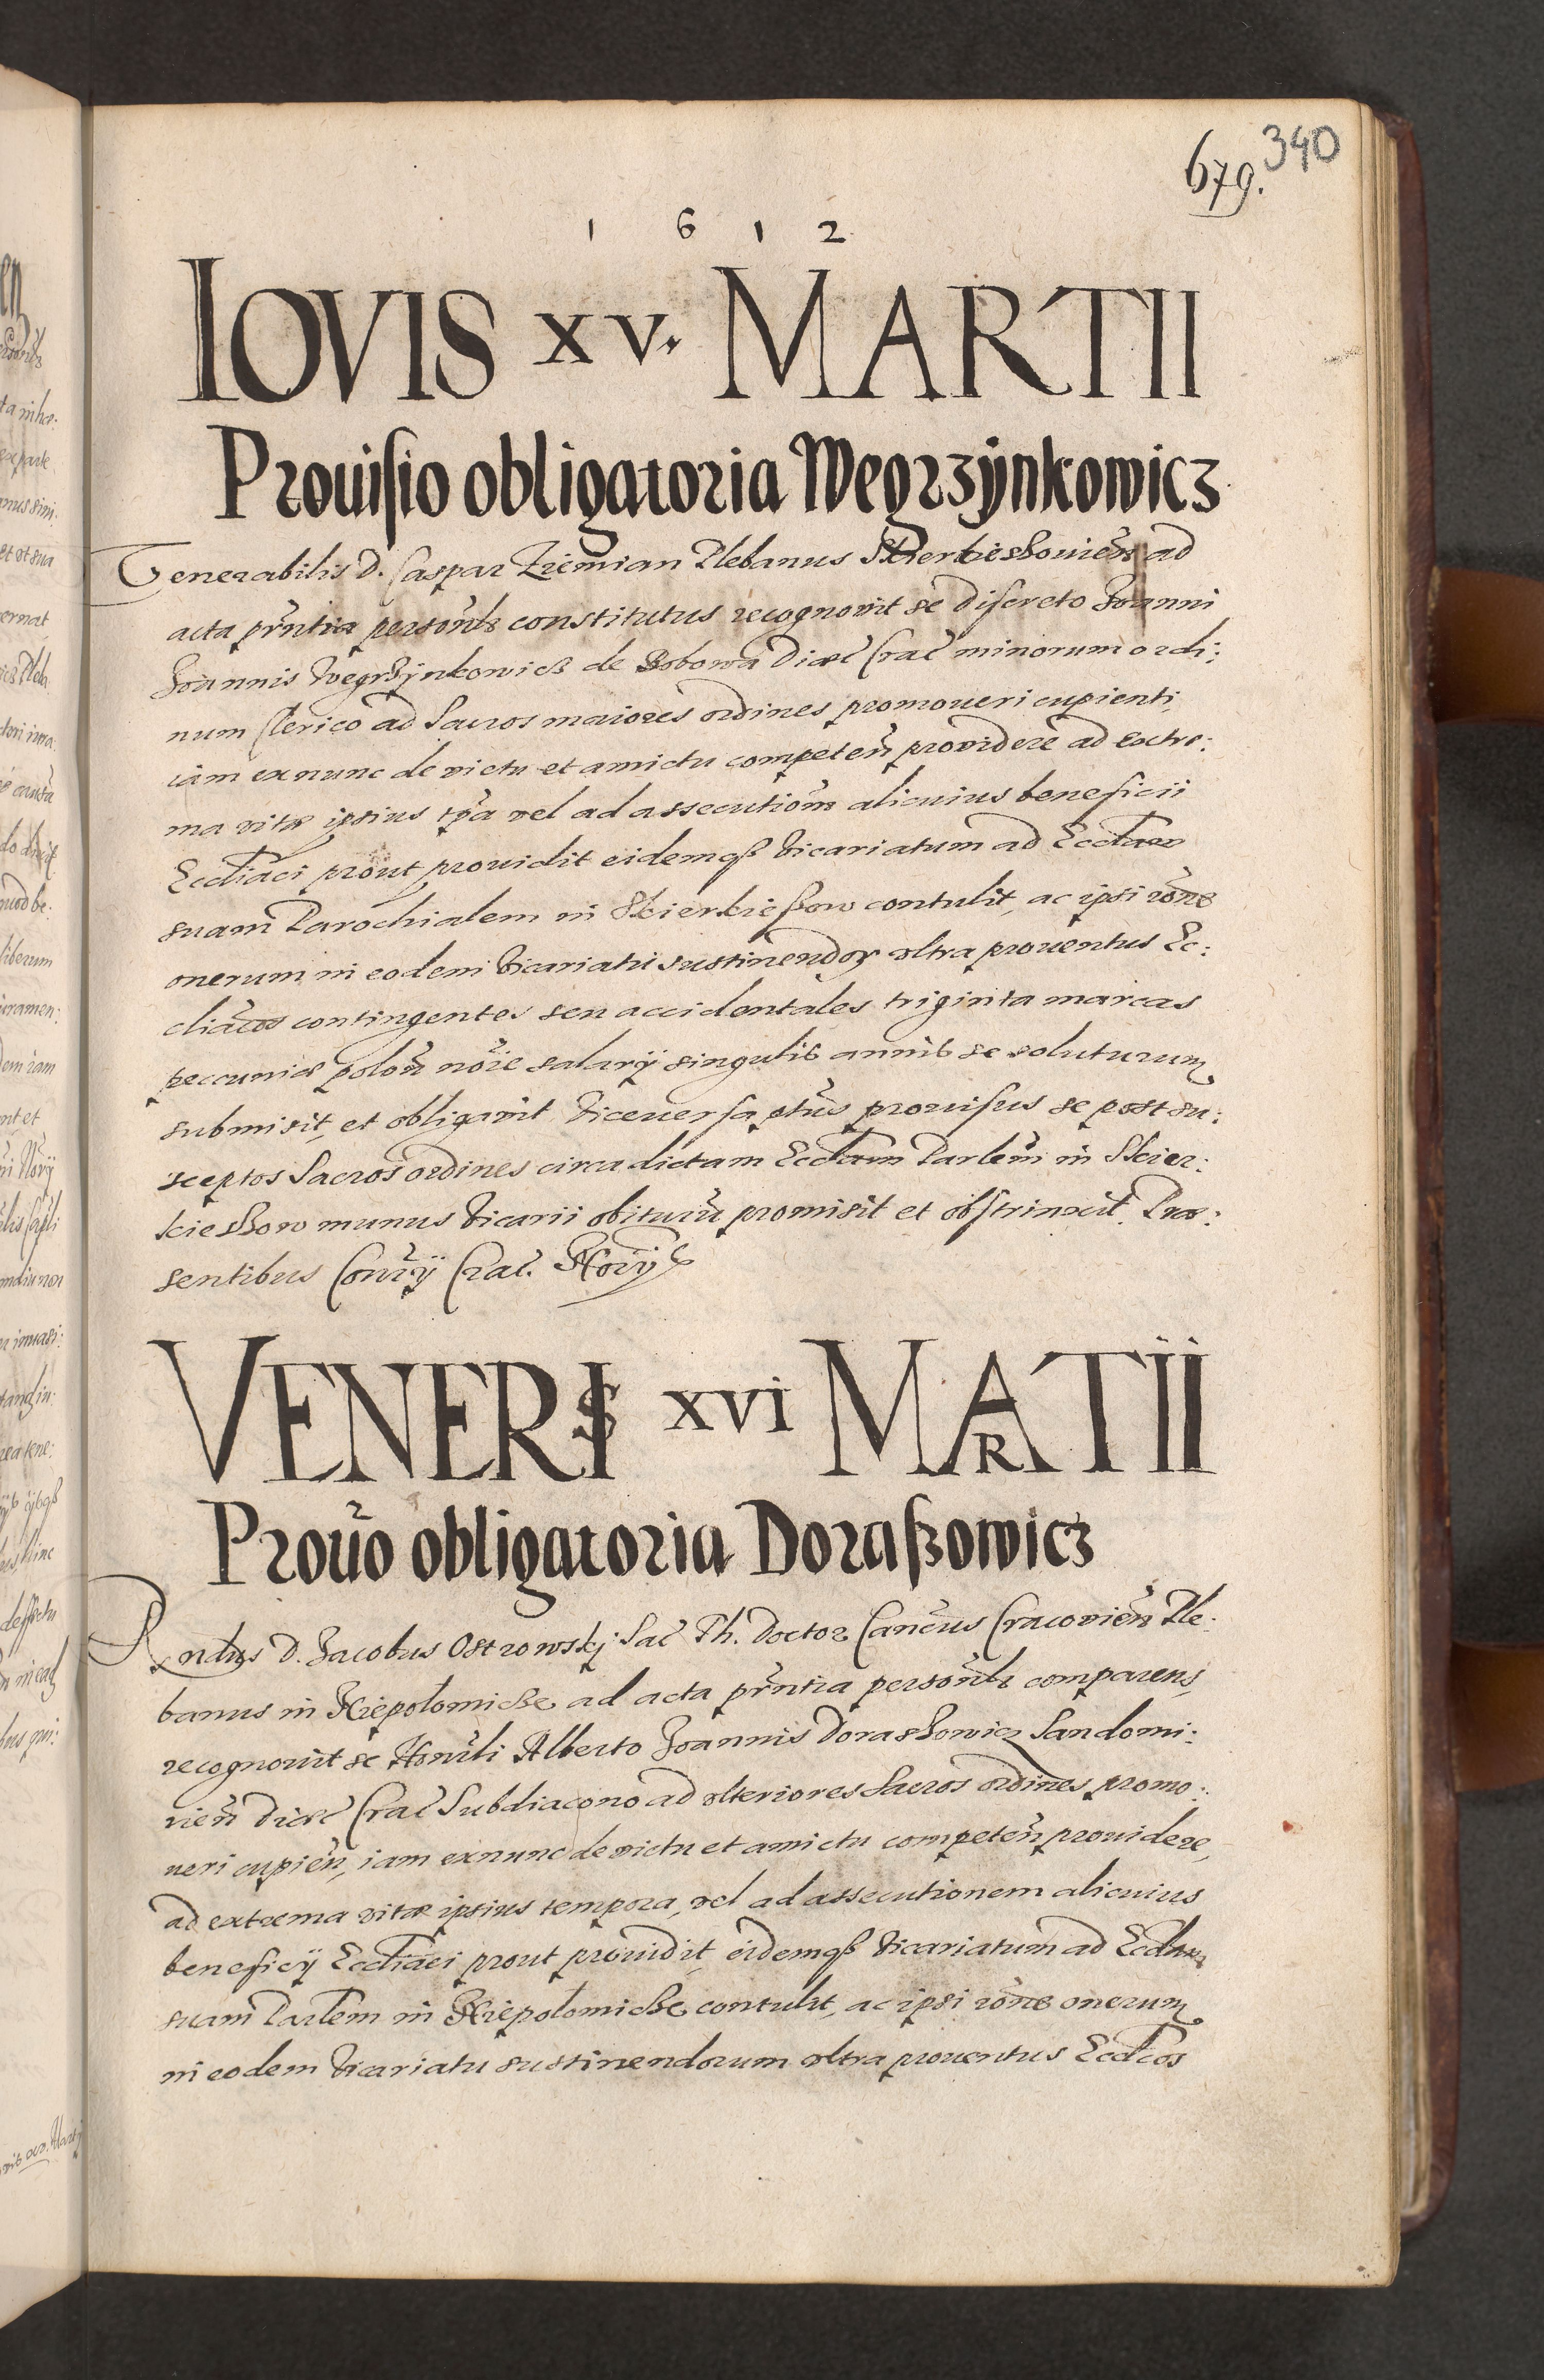 679. 340
1 6 1 2
IOVIS XV. MARTII
Prouisio obligatoria Wegrzÿnkowicz
Venerabilis D. Caspar Ziemian Plebanus Skierbieszouien̄ ad
acta pn̄tia person̄lr constitutus recognouit se discreto Joanni
Joannis Wegrzÿnkowicz de Bobowa Diæc̄ Crac̄ minorum ordi:
num Clerico ad Sacros maiores ordines promoueri cupienti
iam ex nunc de victu et amictu competen̄ prouidere ad extre:
ma vitæ ipsius tp̄a vel ad assecutiōm alicuius beneficii
Eccl̄iaci prout prouidit eidemqß Vicariatum ad Eccl̄am
suam Parochialem in Skierbießow contulit, ac ipsi rōne
onerum in eodem Vicariatu sustinendoꝝ vltra prouentus Ec:
cliācos contingentes seu accidentales triginta marcas
peccuniæ polon̄ nōie salarÿ singulis annis se soluturum
submisit, et obligauit Viceuersa ptūs prouisus se post su:
sceptos Sacros ordines circa dictam Eccl̄am Parlēm in Skier:
bieszow munus Vicarii obiturū promisit et obstrinxit. Præ:
sentibus Consrÿ Crac̄. Norÿs
VENERIS XVI MARTII
Prouo̅ obligatoria Doraßowicz
Rndus D. Jacobus Ostrowskj Sac̄ Th. Doctor Canc̄us Cracouien̄ Ple:
banus in Niepolomicze ad acta pn̄tia person̄lr comparens,
recognouit se Honrli Alberto Joannis Doraszowicz Sandomi:
rien̄ Diæc̄ Crac̄ Subdiacono ad vlteriores Sacros ordines promo:
ueri cupien̄, iam ex nunc de victu et amictu competen̄ prouidere,
ad extrema vitæ ipsius tempora, vel ad assecutionem alicuius
beneficÿ Eccl̄iaci prout prouidit, eidemqß Vicariatum ad Eccl̄am
suam Parl̄em in Niepolomicze contulit, ac ipsi rōne onerum
in eodem Vicariatu sustinendorum vltra prouentus Eccl̄cos